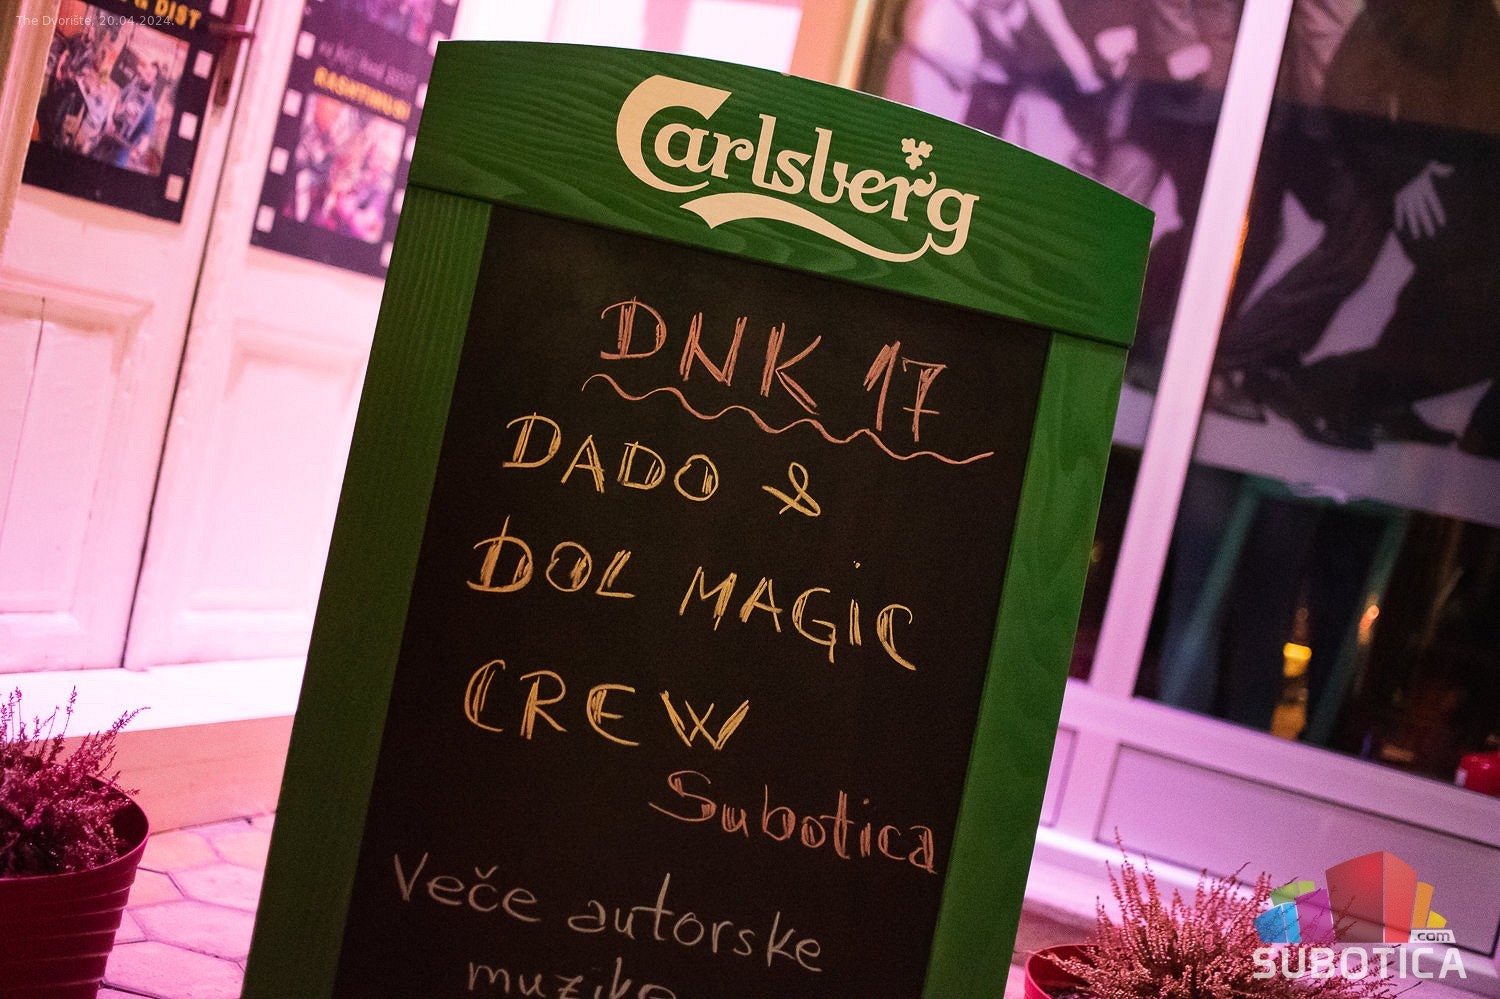 The Dvorište, 20.04.2024.
DIST
BASHTINUS!
Carlsberg
DNK 17
DADO &
DOL MAGiC
CREW
Subotica
Veče autorske
muzike
.com
SUBOTICA